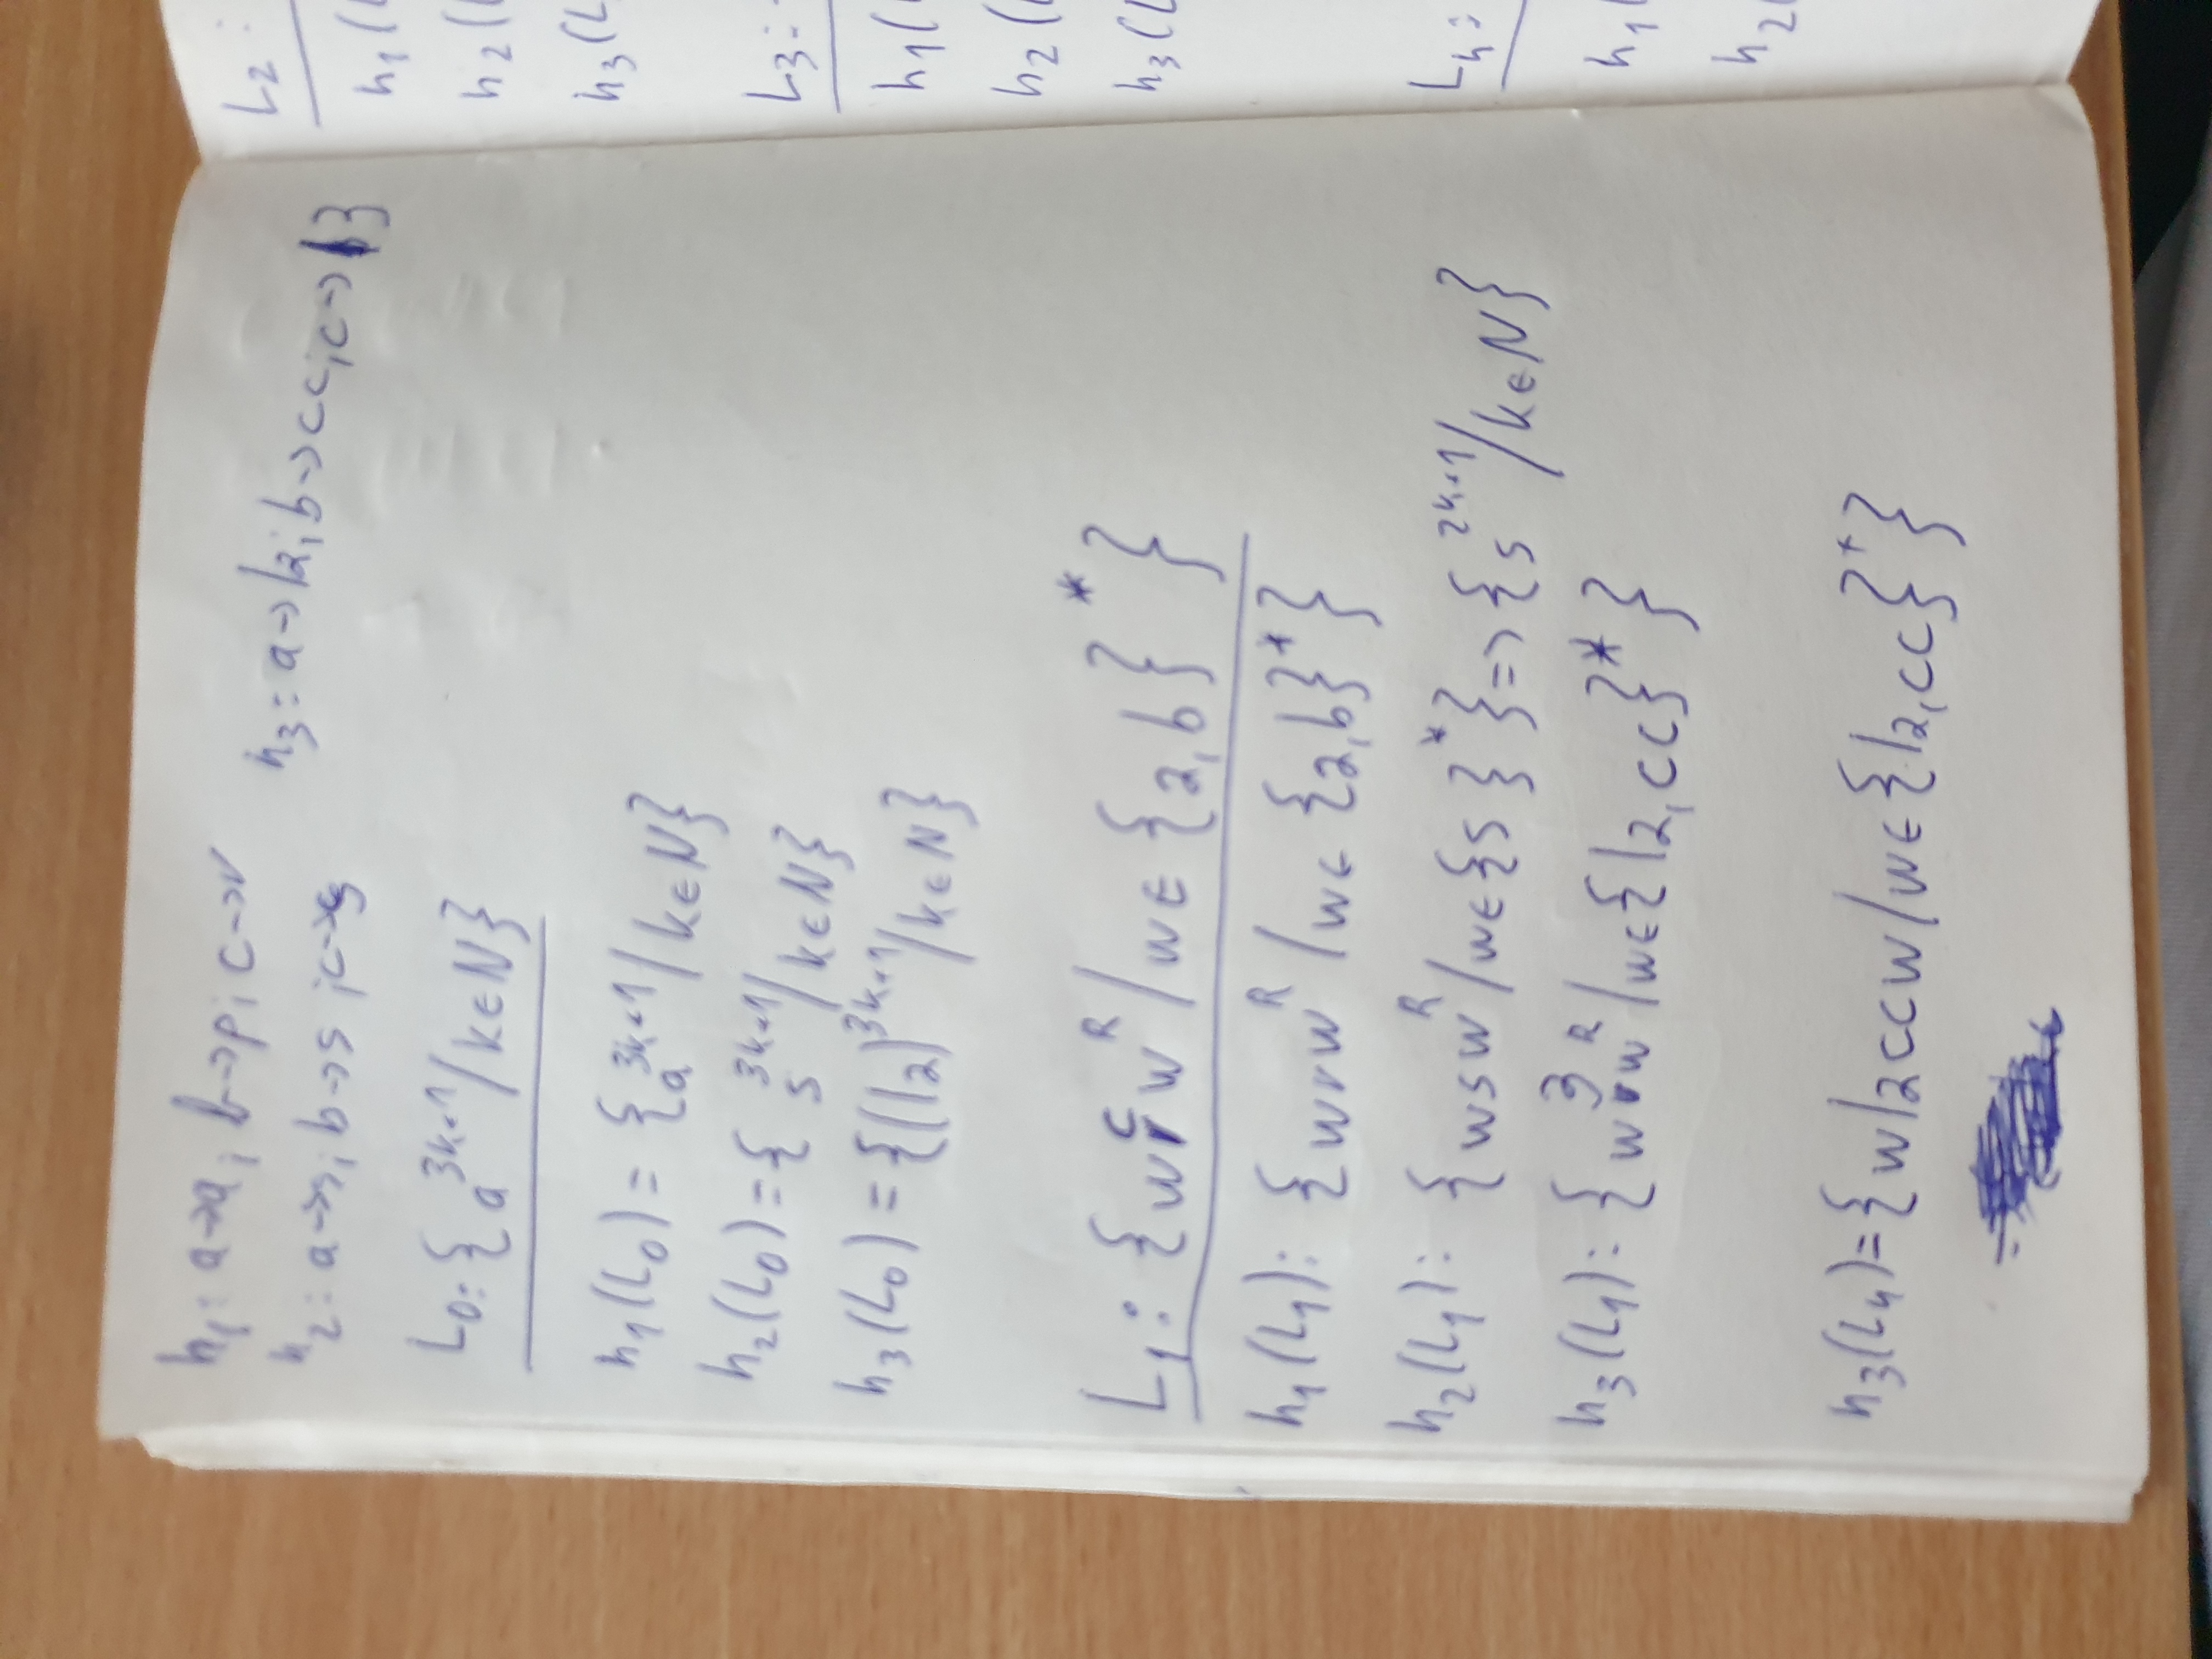 h₁: a→a; b→p; c→r
h₂: a→s; b→s; c→s
h₃: a→12; b→cc; c→3
L₀: {a³ᵏ⁺¹/k∈N}
h₁(L₀) = {a³ᵏ⁺¹/k∈N}
h₂(L₀) = {s³ᵏ⁺¹/k∈N}
h₃(L₀) = {(12)³ᵏ⁺¹/k∈N}
L₁: {wcwᴿ/w∈{a,b}*}
h₁(L₁): {wrwᴿ/w∈{a,b}*}
h₂(L₁): {wswᴿ/w∈{s}*} => {s²ᵏ⁺¹/k∈N}
h₃(L₁): {w3wᴿ/w∈{12,cc}*}
h₃(L₄) = {w12ccw/w∈{12,cc}⁺}
L₂:
h₁(
h₂(
h₃(L
L₃:
h₁(
h₂(
h₃(L
L₄:
h₁(
h₂(